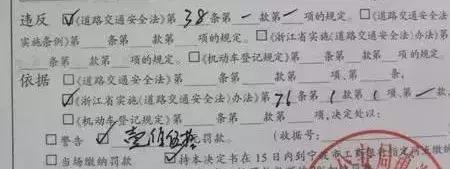 违反 ☑《道路交通安全法》第38条第一款第一项的规定。☐《浙江省
实施条例》第 条第 款第 项的规定。☐《浙江省实施(道路交通安全法)办法》第
条第 款第 项的规定。☐《机动车登记规定》第 条第 款第 项的规定。
依据 ☐《道路交通安全法》第 条第 款第 项、第 条,
☑《浙江省实施(道路交通安全法)办法》第76条第1款第1项、第一款,
☐《机动车登记规定》第 条第 款第 项,决定处以:
☐警告 ☑壹佰伍拾罚款。 (收据号:
☐当场缴纳罚款 ☑持本决定书在15日内到宁波市工商银行指定网点缴